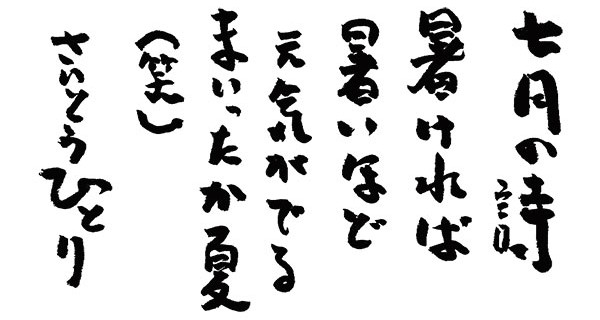 七月の詩
暑ければ
暑いほど
元気がでる
まいったか夏
(笑)
さいとうひとり